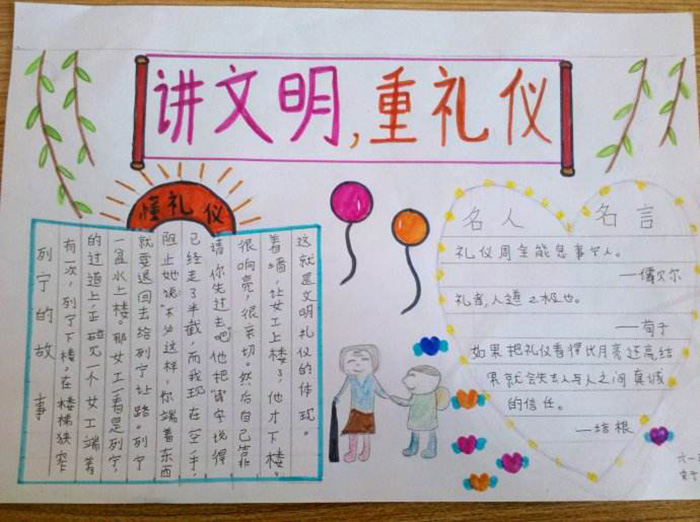 讲文明,重礼仪
懂礼仪
列宁的故事
有一次,列宁下楼,在楼梯狭窄
的过道上,正碰见一个女工端着
一盆水上楼。那女工一看是列宁,
就要退回去给列宁让路。列宁
阻止她说:"不必这样,你端着东西
已经走了半截,而我现在空手,
请你先过去吧"他把"请"字说得
很响亮,很亲切。然后自己靠
着墙,让女工上楼了,他才下楼。
这就是文明礼仪的体现。
名人名言
礼仪周全能息事宁人。
—儒贝尔
礼者,人道之极也。
—荀子
如果把礼仪看得比月亮还高结
果就会失去人与人之间真诚
的信任。
—培根
六一